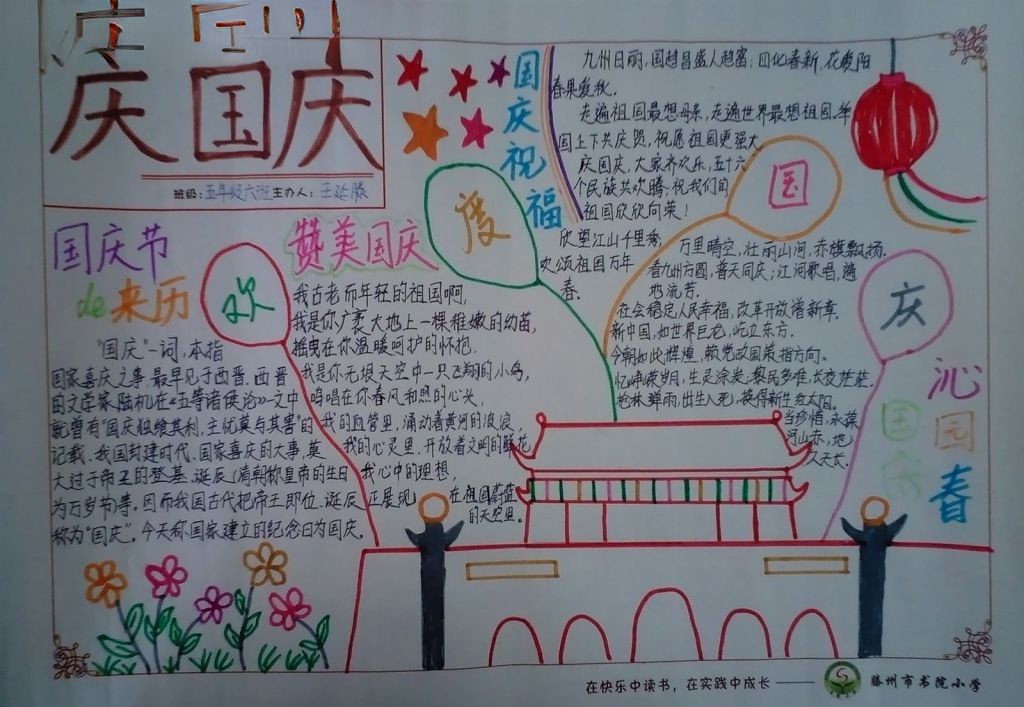 庆国庆
庆国庆
班级：五年级六班主办人：王延滕
国庆节
de来历
"国庆"一词，本指
国家喜庆之事，最早见于西晋。西晋
的文学家陆机在《五等诸侯论》一文中
就曾有"国庆独飨其利，主忧莫与其害"的
记载。我国封建时代、国家喜庆的大事，莫
大过于帝王的登基、诞辰（清朝称皇帝的生日
为万岁节）等。因而我国古代把帝王即位、诞辰
称为"国庆"。今天称国家建立的纪念日为国庆。
欢
度
国
庆
赞美国庆
我古老而年轻的祖国啊，
我是你广袤大地上一棵稚嫩的幼苗，
摇曳在你温暖呵护的怀抱。
我是你无垠天空中一只飞翔的小鸟，
鸣唱在你春风和煦的心头，
我的血管里，涌动着黄河的波浪，
我的心灵里，开放着文明的鲜花
我心中的理想，
正展现
在祖国蔚蓝
的天空里。
国庆祝福
九州日丽，国越昌盛人越富；四化春新，花爱阳
春果爱秋。
走遍祖国最想母亲，走遍世界最想祖国，举
国上下共庆贺，祝愿祖国更强大。
庆国庆，大家齐欢乐，五十六
个民族共欢腾，祝我们的
祖国欣欣向荣！
欣望江山千里秀，
欢颂祖国万年
春。
沁园春
国庆
万里晴空，壮丽山河，赤旗飘扬。
看九州方圆，普天同庆；江河歌唱，遍
地流芳。
社会稳定，人民幸福，改革开放谱新章。
新中国，如世界巨龙，屹立东方。
今朝如此辉煌，赖党政国策指方向。
忆峥嵘岁月，生灵涂炭；黎民多难，长夜茫茫。
枪林弹雨，出生入死，换得新生红太阳。
当珍惜，永葆
河山赤，地
久天长。
在快乐中读书，在实践中成长——
滕州市书院小学